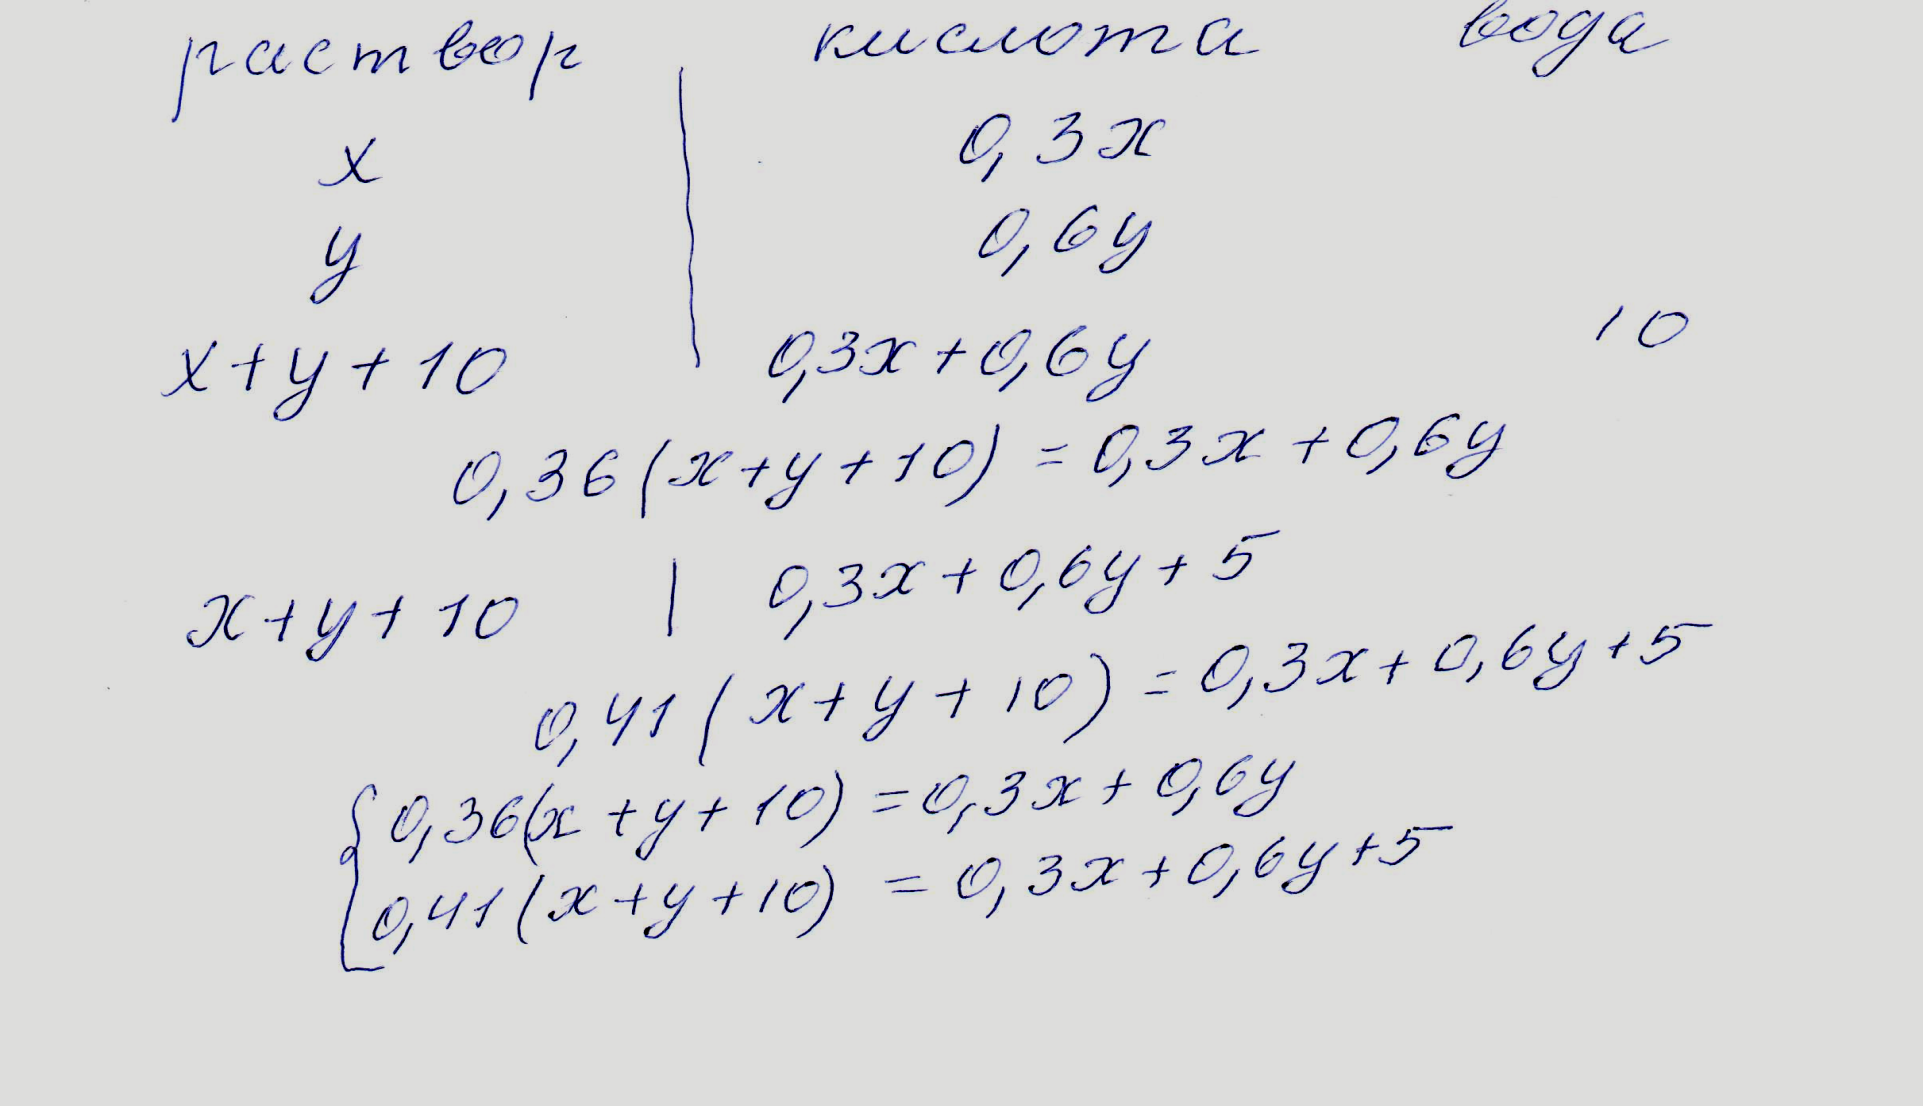 раствор кислота вода
x 0,3x
y 0,6y
x+y+10 0,3x+0,6y 10
0,36(x+y+10)=0,3x+0,6y
x+y+10 | 0,3x+0,6y+5
0,41(x+y+10)=0,3x+0,6y+5
0,36(x+y+10)=0,3x+0,6y
0,41(x+y+10)=0,3x+0,6y+5